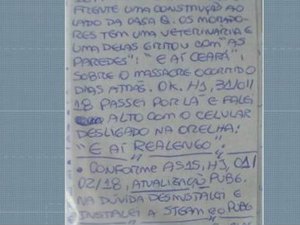 FRENTE UMA CONSTRUÇÃO AO
LADO DA CASA 8. OS MORADO-
RES TÊM UMA VETERINÁRIA E
UMA DELAS GRITOU COM "AS
PAREDES": "E AÍ CEARÁ"
SOBRE O MASSACRE OCORRIDO
DIAS ATRÁS. OK. HJ, 31/01/
18 PASSEI POR LÁ E FALEI
ALTO COM O CELULAR
DESLIGADO NA ORELHA:
"E AÍ REALENGO."
• CONFORME AS15, HJ, 01/
02/18, ATUALIZAÇÃO PUBG.
NA DÚVIDA DESINSTALEI E
INSTALEI A STEAM E O PUBG